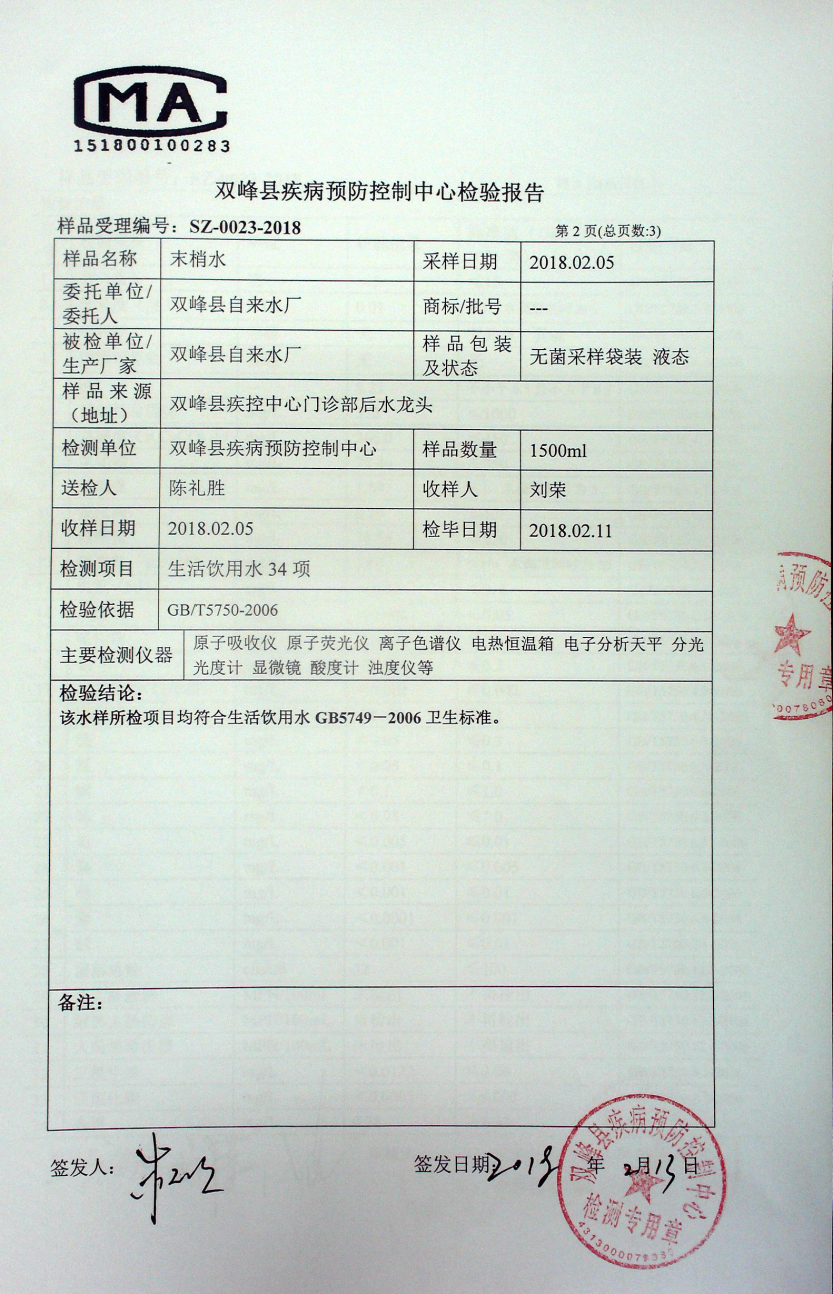 CMA
151800100283
双峰县疾病预防控制中心检验报告
样品受理编号：SZ-0023-2018
第 2 页(总页数:3)
样品名称 末梢水 采样日期 2018.02.05
委托单位/
委托人 双峰县自来水厂 商标/批号 ---
被检单位/
生产厂家 双峰县自来水厂 样品包装
及状态 无菌采样袋装 液态
样品来源
（地址） 双峰县疾控中心门诊部后水龙头
检测单位 双峰县疾病预防控制中心 样品数量 1500ml
送检人 陈礼胜 收样人 刘荣
收样日期 2018.02.05 检毕日期 2018.02.11
检测项目 生活饮用水 34 项
检验依据 GB/T5750-2006
主要检测仪器 原子吸收仪 原子荧光仪 离子色谱仪 电热恒温箱 电子分析天平 分光
光度计 显微镜 酸度计 浊度仪等
检验结论：
该水样所检项目均符合生活饮用水 GB5749－2006 卫生标准。
备注：
签发人：
签发日期：2018 年 2月13日
双峰县疾病预防控制中心
检测专用章
病预防控
专用章